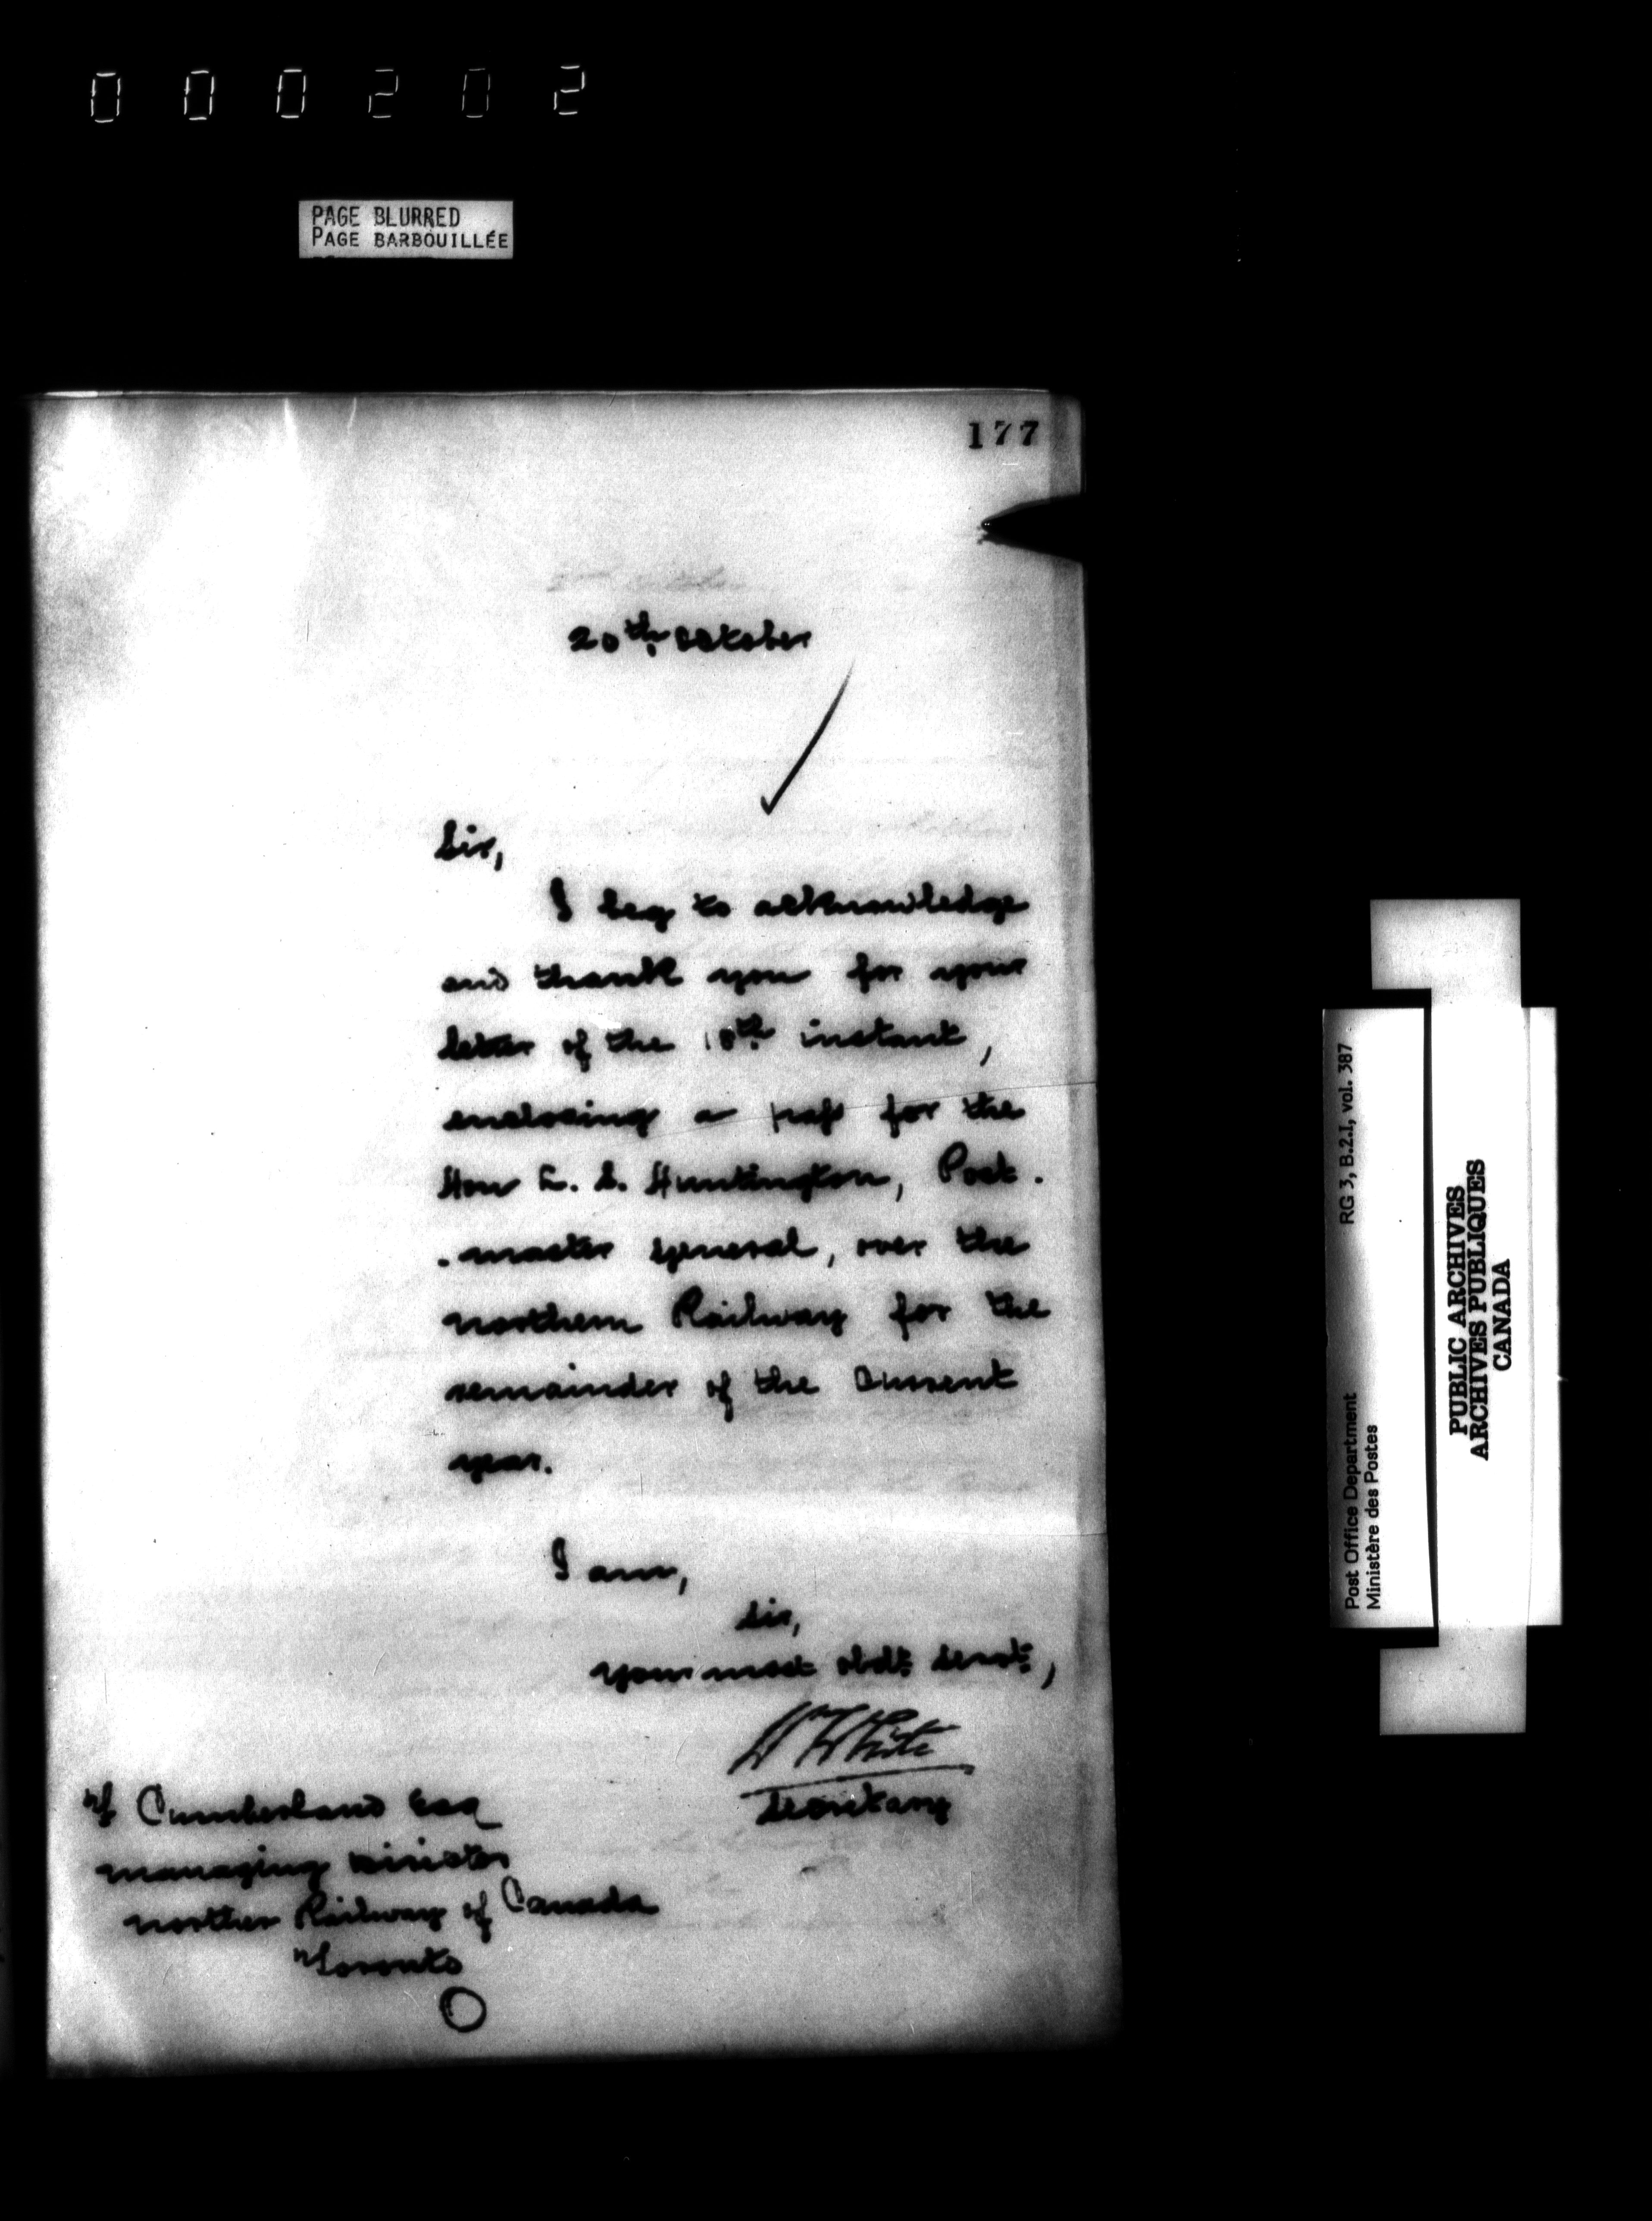 000202
PAGE BLURRED
PAGE BARBOUILLÉE
177
20th October
Sir,
I beg to acknowledge
and thank you for your
letter of the 18th instant,
enclosing a pass for the
Hon L. S. Huntington, Post.
. master General, over the
northern Railway for the
remainder of the Current
year.
I am,
Sir,
your most obdt servt,
W White
Secretary
Cumberland Esq
managing
norther Railway of Canada
Toronto
Post Office Department
Ministère des Postes
RG 3, B.2.I, vol. 387
PUBLIC ARCHIVES
ARCHIVES PUBLIQUES
CANADA